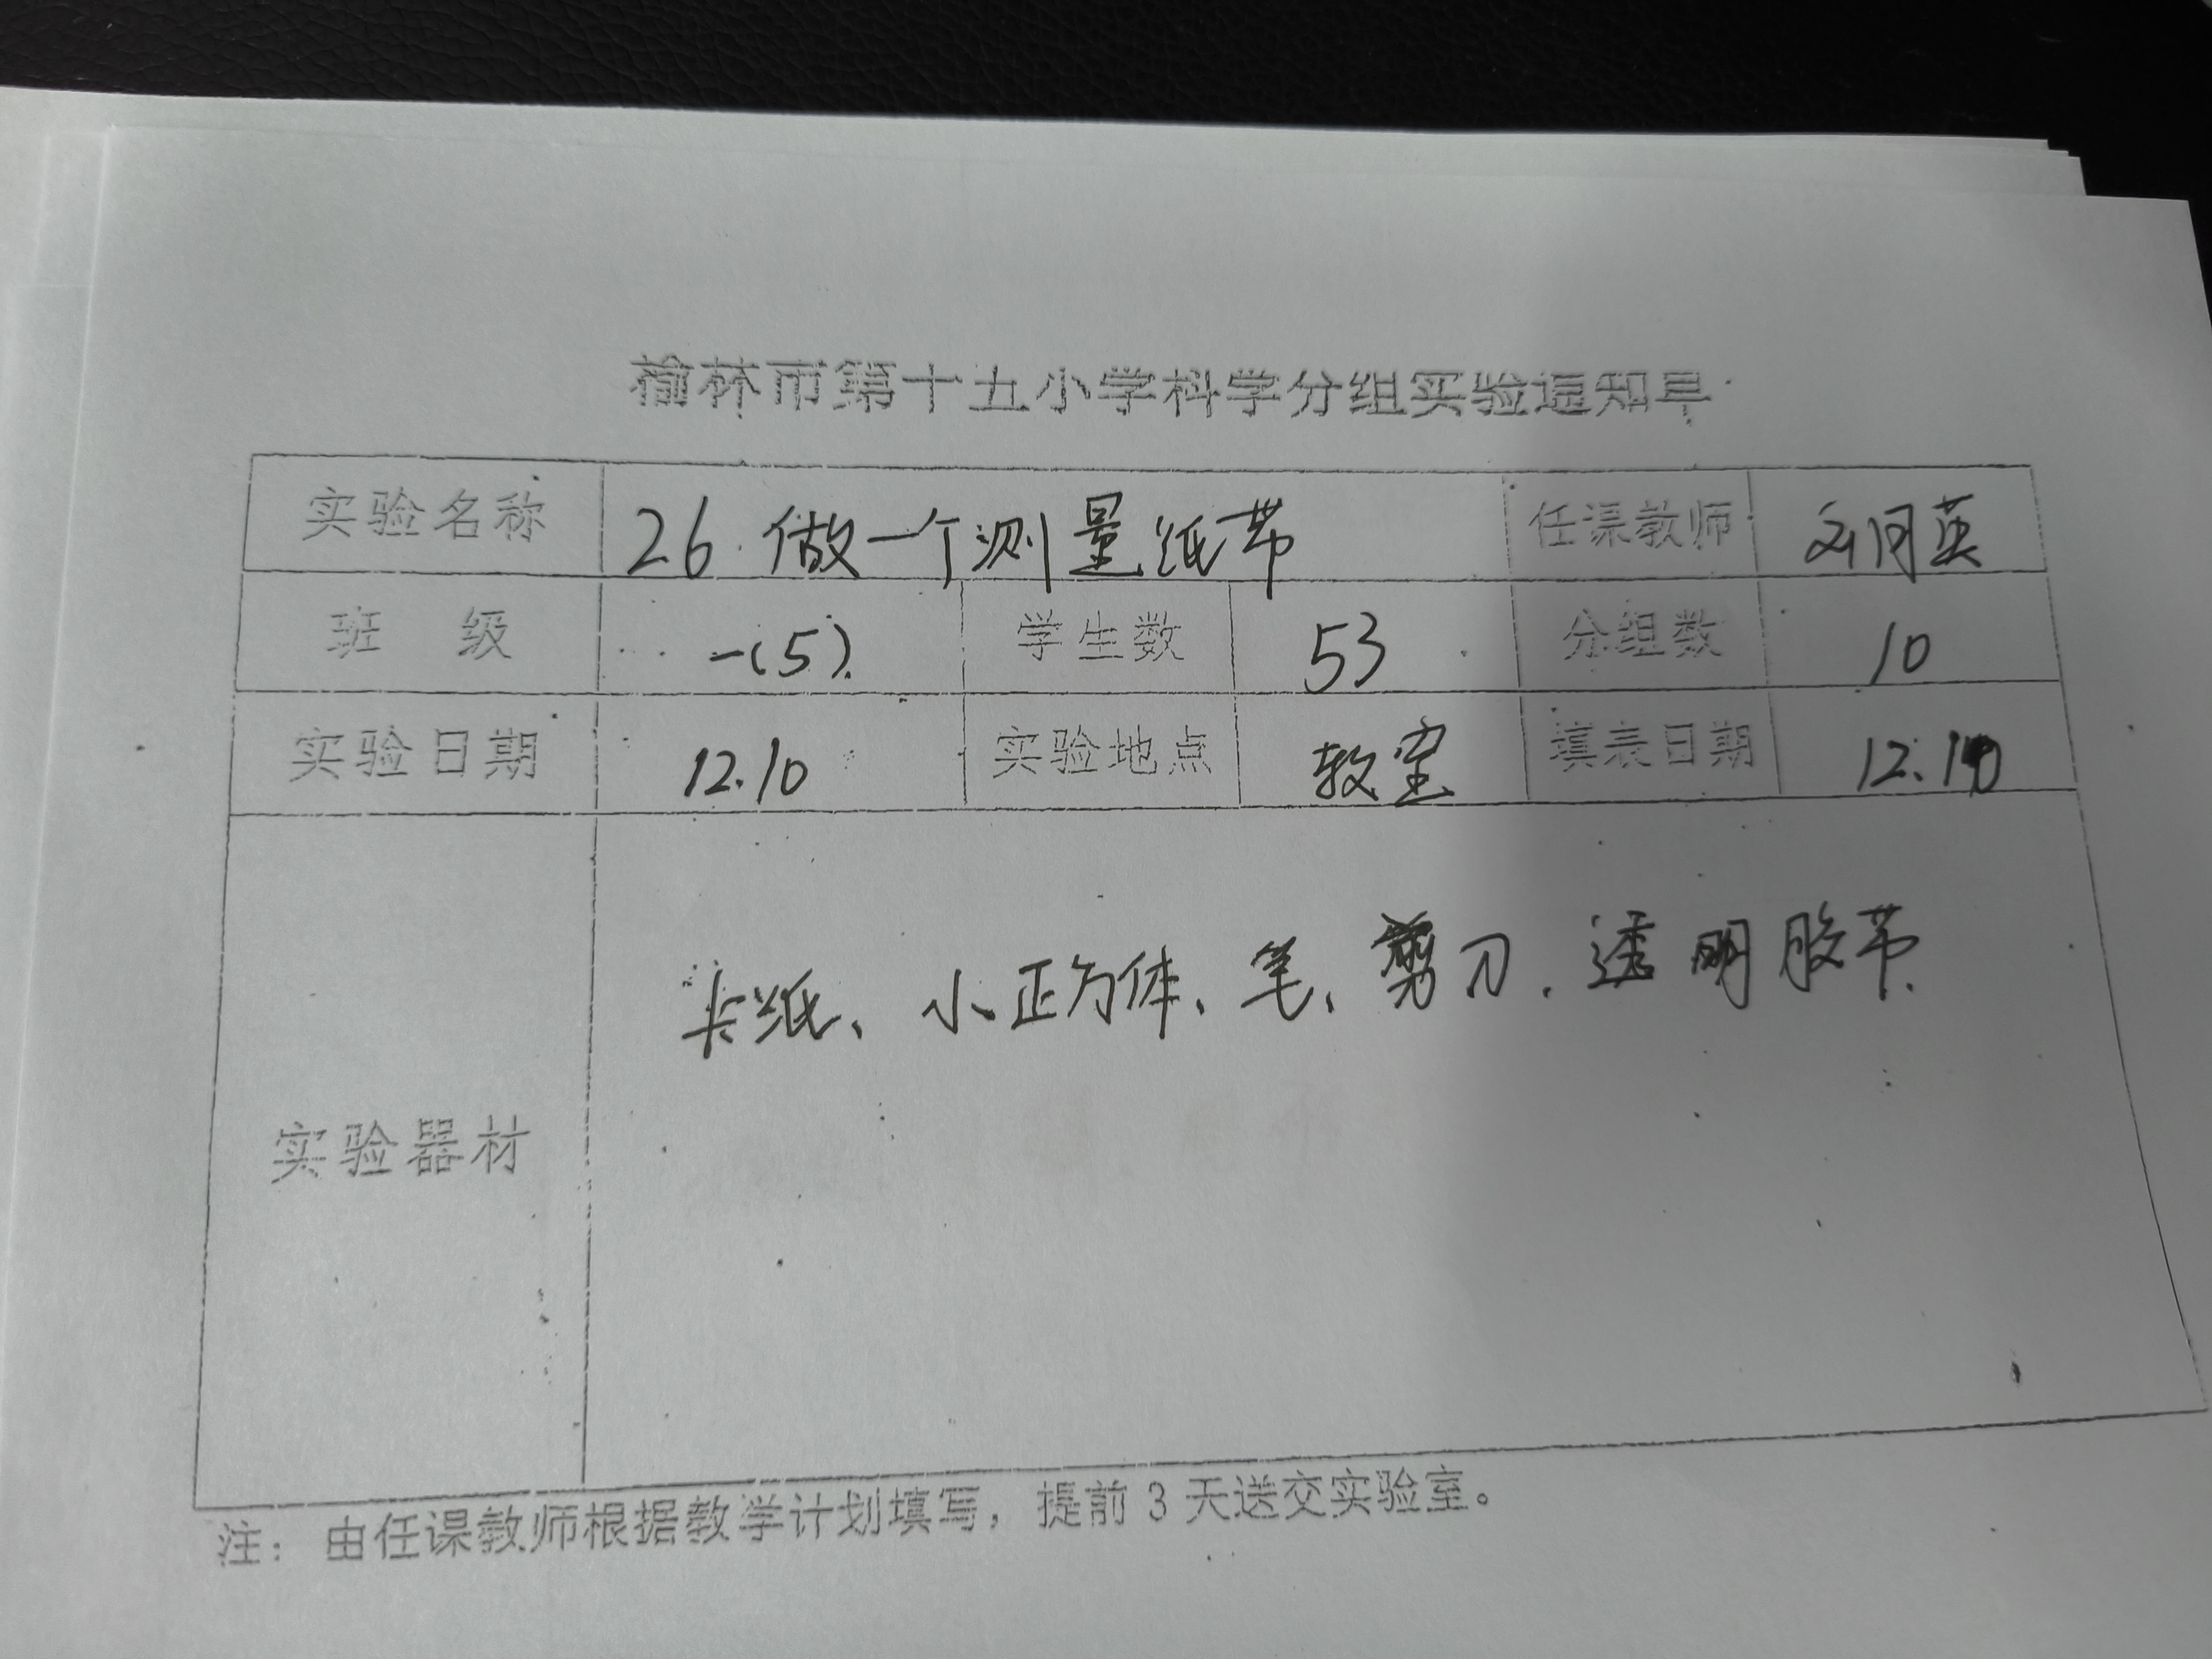 榆林市第十五小学科学分组实验通知单
实验名称 26. 做一个测量纸带 任课教师 刘月英
班 级 一(5) 学生数 53 分组数 10
实验日期 12.10 实验地点 教室 填表日期 12.10
实验器材 卡纸、小正方体、笔、剪刀、透明胶带、
注：由任课教师根据教学计划填写，提前 3 天送交实验室。